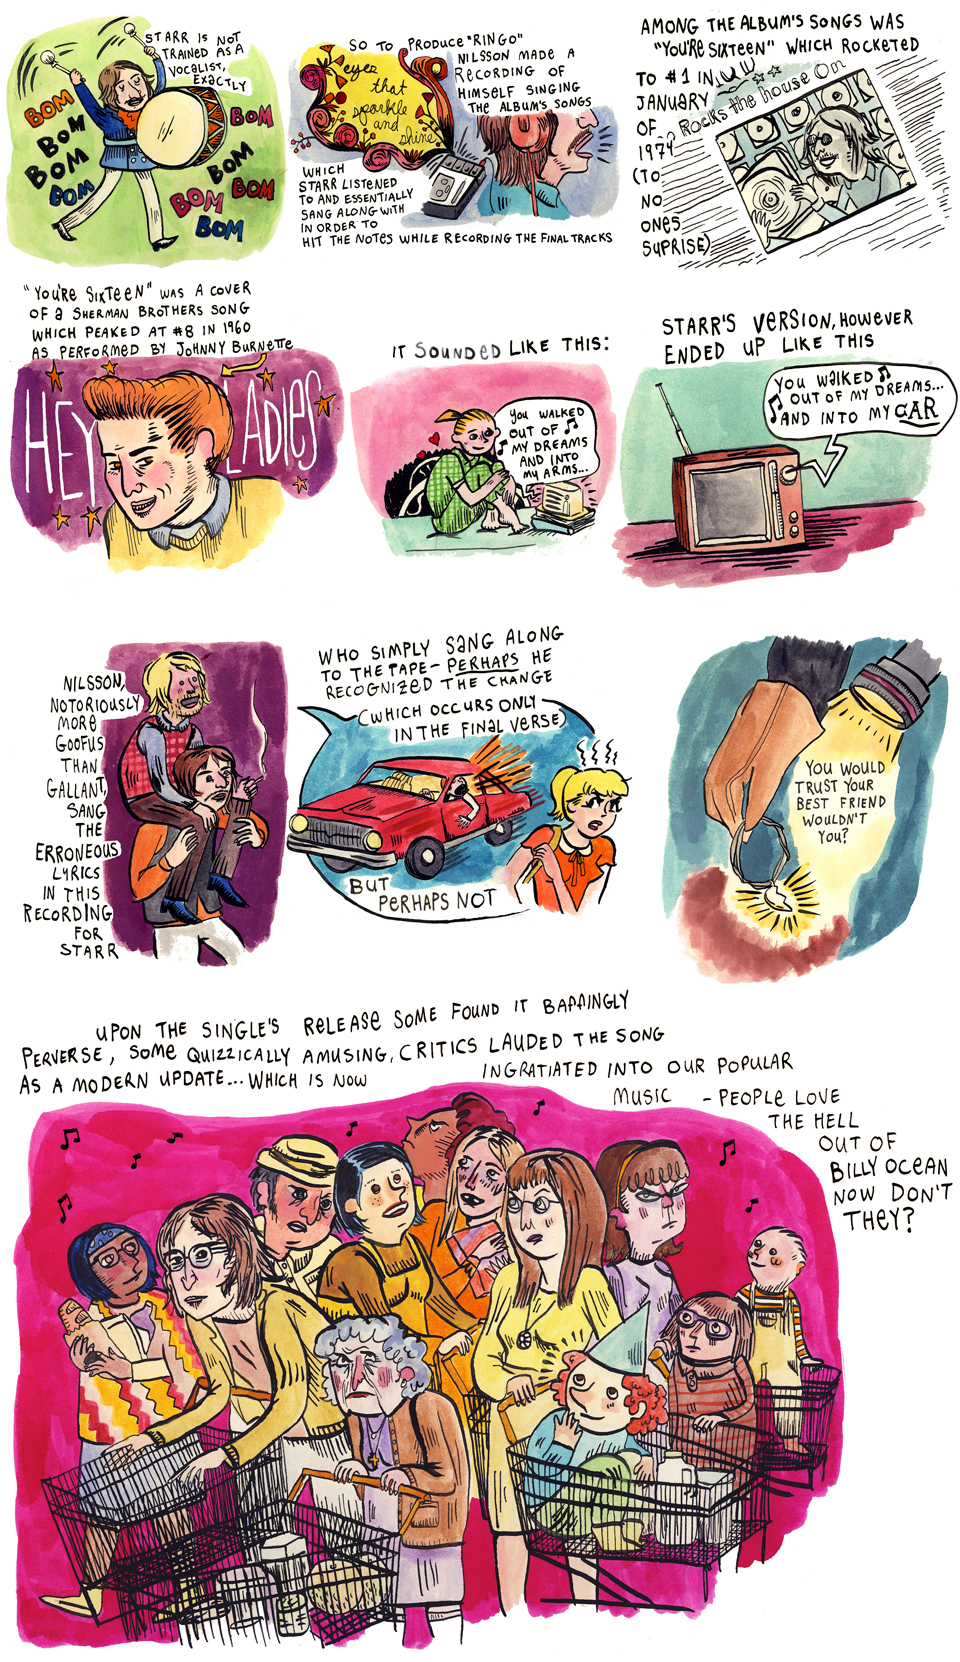 STARR IS NOT
TRAINED AS A
VOCALIST,
EXACTLY
BOM
BOM
BOM
BOM
BOM
BOM
BOM
BOM
BOM
SO TO PRODUCE "RINGO"
NILSSON MADE A
RECORDING OF
HIMSELF SINGING
THE ALBUM'S SONGS
eyes
that
sparkle
and
shine
WHICH
STARR LISTENED
TO AND ESSENTIALLY
SANG ALONG WITH
IN ORDER TO
HIT THE NOTES WHILE RECORDING THE FINAL TRACKS
AMONG THE ALBUM'S SONGS WAS
"YOU'RE SIXTEEN" WHICH ROCKETED
TO #1 IN
JANUARY
OF
1974
(TO
NO
ONES
SUPRISE)
Rocks the house On
"YOU'RE SIXTEEN" WAS A COVER
OF A SHERMAN BROTHERS SONG
WHICH PEAKED AT #8 IN 1960
AS PERFORMED BY JOHNNY BURNETTE
HEY LADIES
IT SOUNDED LIKE THIS:
YOU WALKED
OUT OF
MY DREAMS
AND INTO
MY ARMS...
STARR'S VERSION, HOWEVER
ENDED UP LIKE THIS
YOU WALKED
OUT OF MY DREAMS...
AND INTO MY CAR
NILSSON,
NOTORIOUSLY
MORE
GOOFUS
THAN
GALLANT,
SANG
THE
ERRONEOUS
LYRICS
IN THIS
RECORDING
FOR
STARR
WHO SIMPLY SANG ALONG
TO THE TAPE- PERHAPS HE
RECOGNIZED THE CHANGE
(WHICH OCCURS ONLY
IN THE FINAL VERSE)
BUT
PERHAPS NOT
YOU WOULD
TRUST YOUR
BEST FRIEND
WOULDN'T
YOU?
UPON THE SINGLE'S RELEASE SOME FOUND IT BAFFINGLY
PERVERSE, SOME QUIZZICALLY AMUSING, CRITICS LAUDED THE SONG
AS A MODERN UPDATE... WHICH IS NOW INGRATIATED INTO OUR POPULAR
MUSIC - PEOPLE LOVE
THE HELL
OUT OF
BILLY OCEAN
NOW DON'T
THEY?